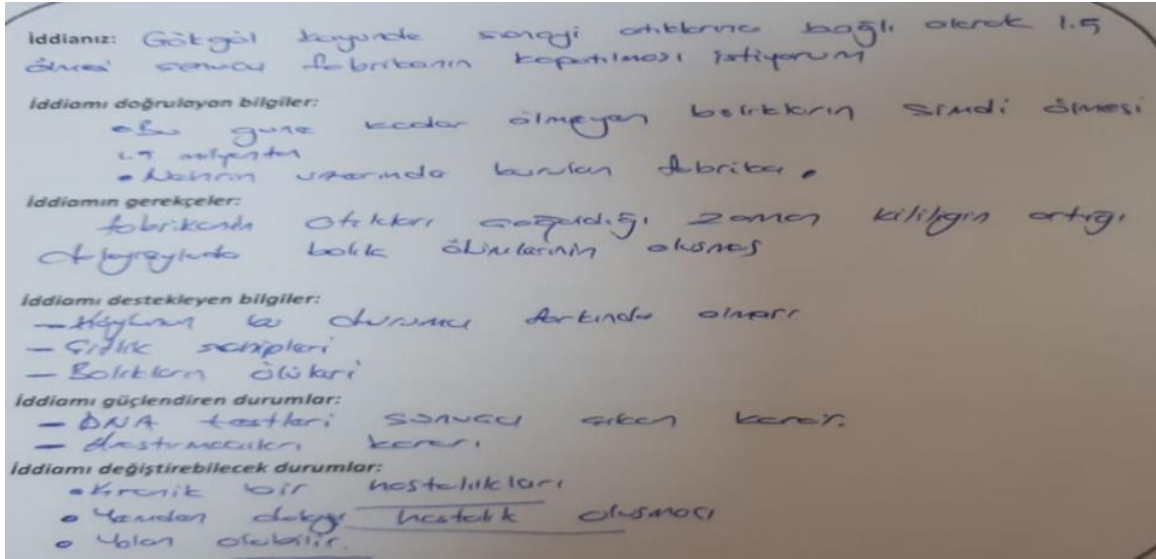 İddianız: Gökgöl koyunde sanayi atıklarına bağlı olarak 1.5
ölmesi sonucu fabrikanın kapatılması istiyorum
İddiamı doğrulayan bilgiler:
• Bu güne kadar ölmeyen balıkların şimdi ölmesi
1.5 milyondan
• Nehrin üzerinde kurulan fabrika.
İddiamın gerekçeler:
fabrikanın atıkları çoğaldığı zaman kirliliğin artığı
balık ölümlerinin oluşması
İddiamı destekleyen bilgiler:
— bu durumu farkında olması
— Çiftlik sahipleri
— Balıkların ölüleri
İddiamı güçlendiren durumlar:
— DNA testleri sonucu çıkan karar.
— Araştırmacıları kararı
İddiamı değiştirebilecek durumlar:
• Kronik bir hastalıkları
• hastalık oluşması
• Yalan olabilir.